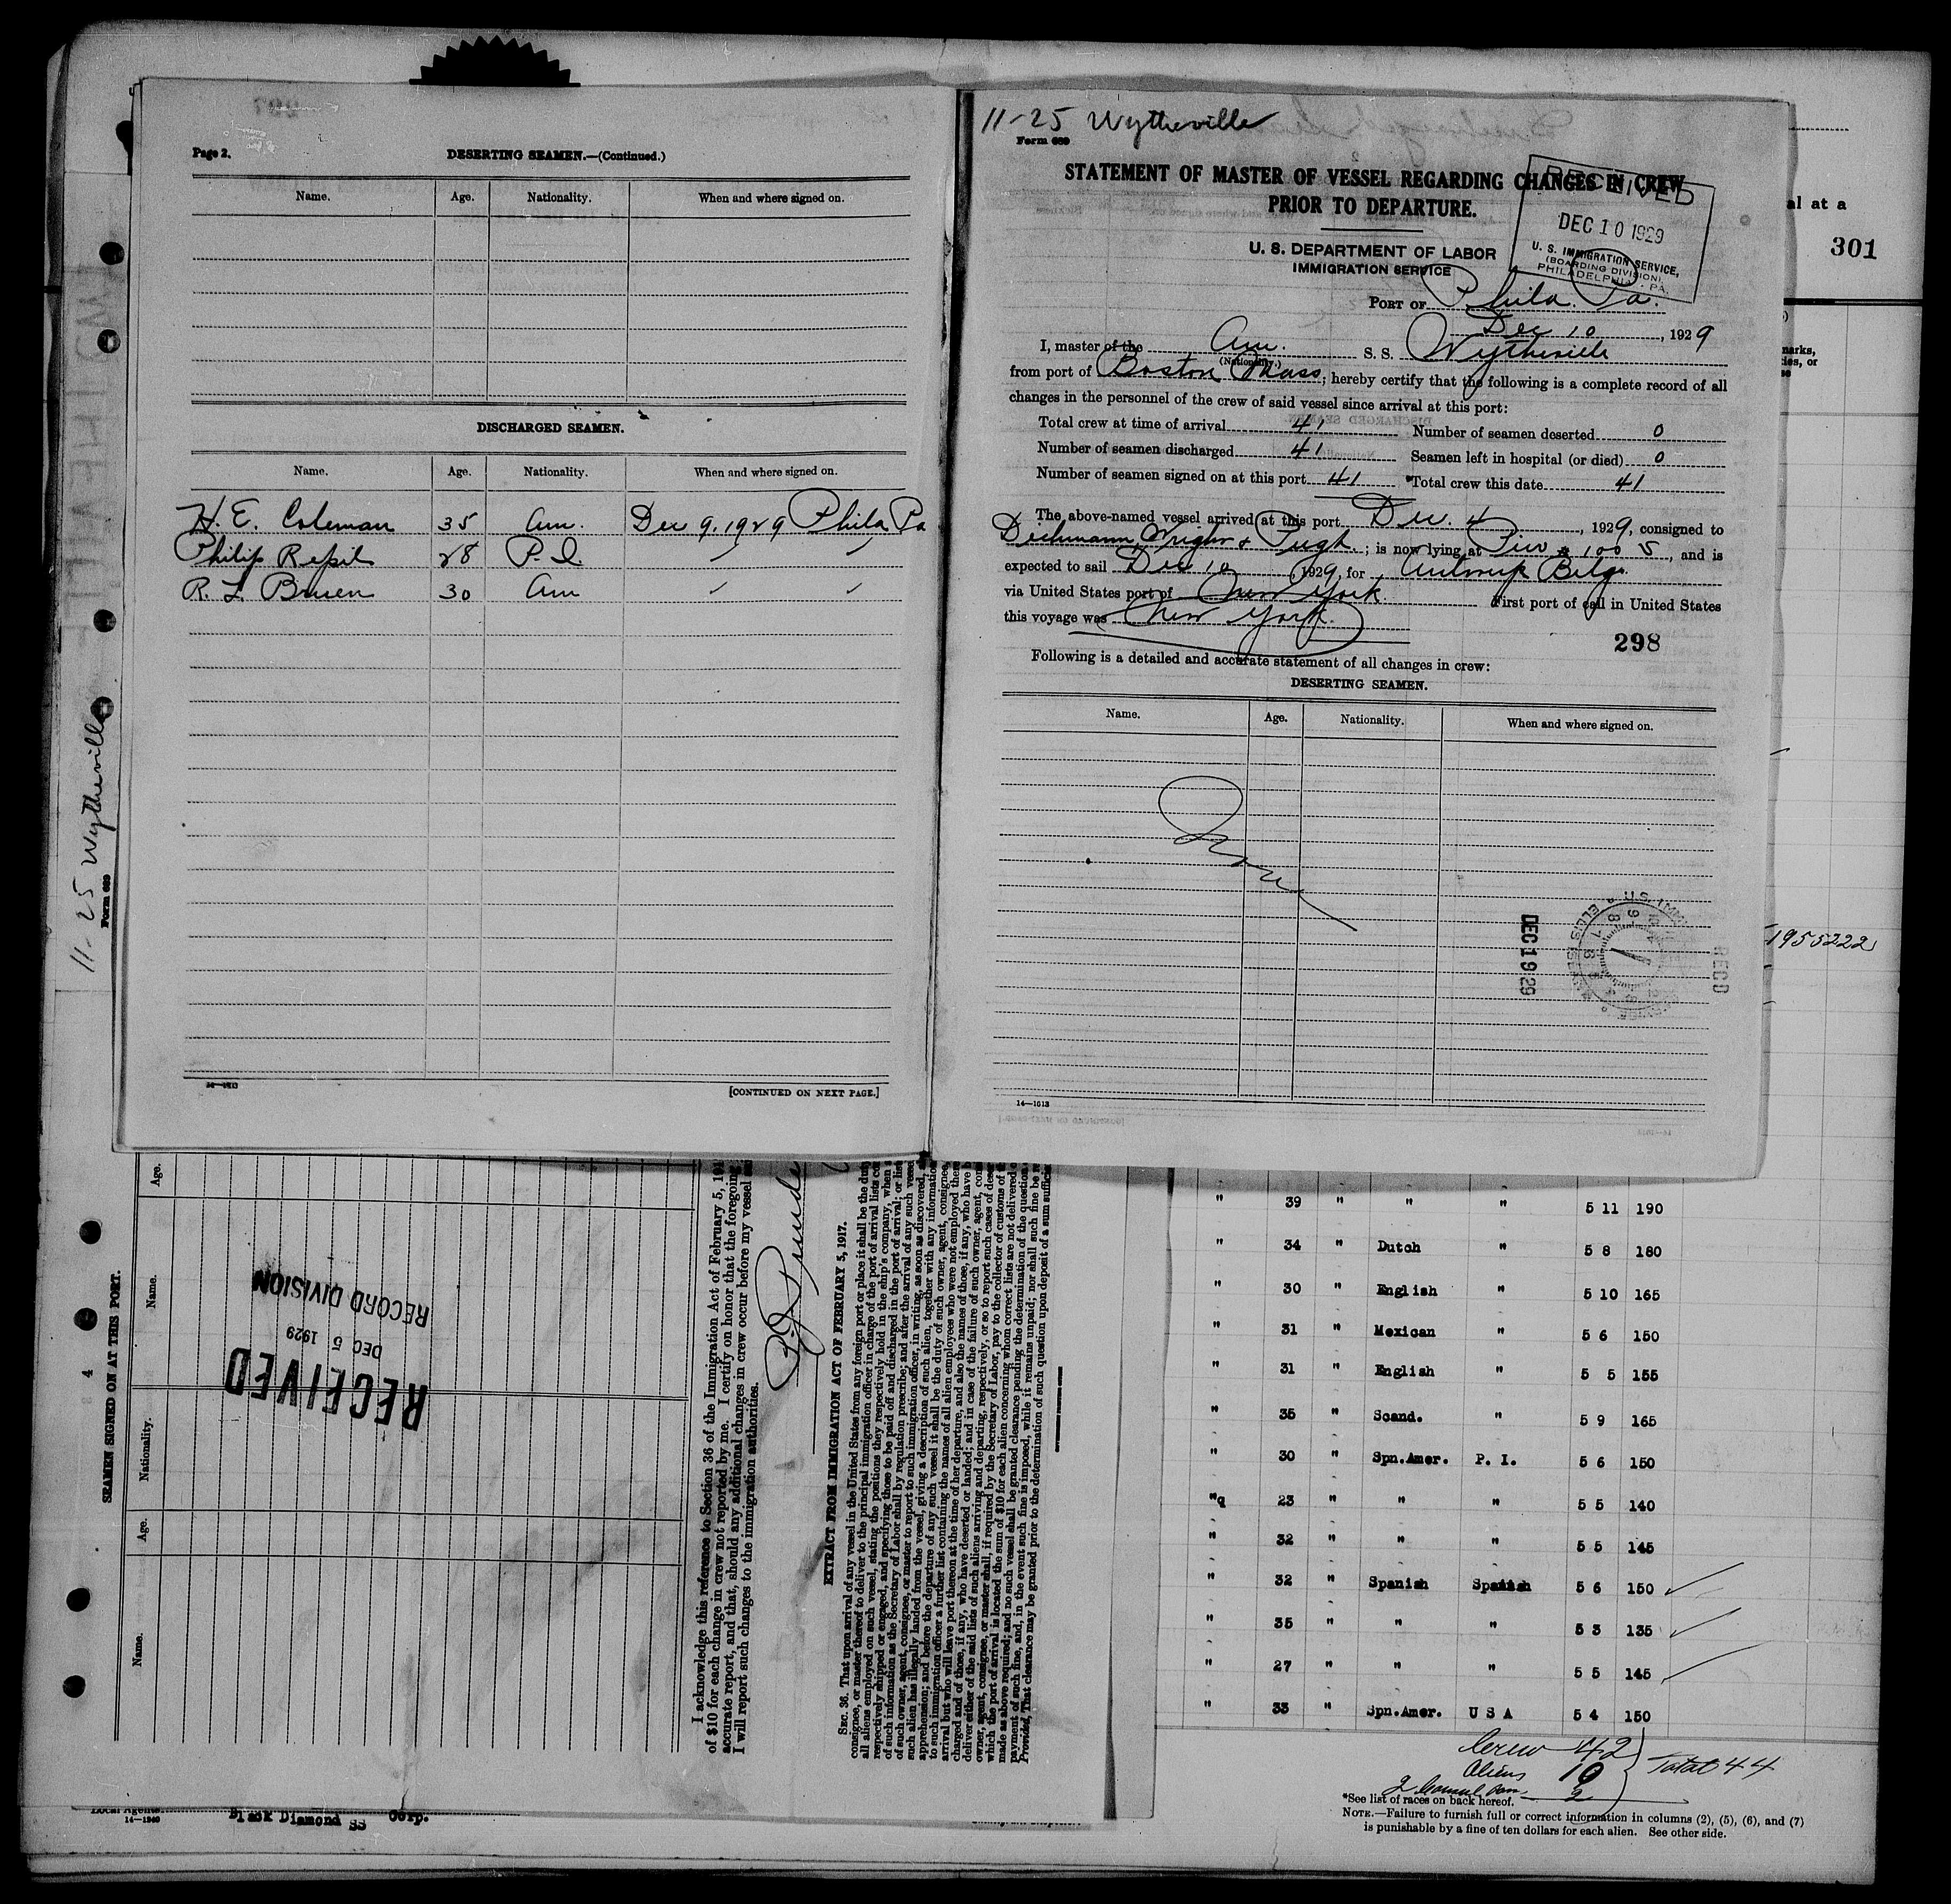 Page 2.
DESERTING SEAMEN.—(Continued.)
Name. Age. Nationality. When and where signed on.
DISCHARGED SEAMEN.
Name. Age. Nationality. When and where signed on.
H. E. Coleman 35 Am. Dec 9, 1929 Phila Pa
Philip 28 P. I. " "
R. L. 30 Am " "
[CONTINUED ON NEXT PAGE.]
11-25 Wytheville
Form 689
STATEMENT OF MASTER OF VESSEL REGARDING CHANGES IN CREW
PRIOR TO DEPARTURE.
U. S. DEPARTMENT OF LABOR
IMMIGRATION SERVICE
RECEIVED
DEC 10 1929
U. S. IMMIGRATION SERVICE,
(BOARDING DIVISION)
PHILADELPHIA, PA.
PORT OF Phila. Pa.
Dec 10, 1929
I, master of the Am. S. S. Wytheville
(Nationality.)
from port of Boston Mass; hereby certify that the following is a complete record of all
changes in the personnel of the crew of said vessel since arrival at this port:
Total crew at time of arrival 41 Number of seamen deserted 0
Number of seamen discharged 41 Seamen left in hospital (or died) 0
Number of seamen signed on at this port 41 *Total crew this date 41
The above-named vessel arrived at this port Dec. 4, 1929, consigned to
Wright & Pugh; is now lying at Pier 100 S, and is
expected to sail Dec 10, 1929, for Antwerp Belg.
via United States port of New York. First port of call in United States
this voyage was New York.
298
Following is a detailed and accurate statement of all changes in crew:
DESERTING SEAMEN.
Name. Age. Nationality. When and where signed on.
None
DEC 19 29
RECD
14—1613
al at a
301
marks,
1955222
11-25 Wytheville
Form 689
SEAMEN SIGNED ON AT THIS PORT.
4
Name. Age. Nationality. Name. Age.
RECEIVED
DEC 5 1929
RECORD DIVISION
I acknowledge this reference to Section 36 of the Immigration Act of February 5, 191
of $10 for each change in crew not reported by me. I certify on honor that the foregoing
accurate report, and that, should any additional changes in crew occur before my vessel
I will report such changes to the immigration authorities.
EXTRACT FROM IMMIGRATION ACT OF FEBRUARY 5, 1917.
SEC. 36. That upon arrival of any vessel in the United States from any foreign port or place it shall be the duty
consignee, or master thereof to deliver to the principal immigration officer in charge of the port of arrival lists
all aliens employed on such vessel, stating the positions they respectively hold in the ship's company, when
respectively shipped or engaged, and specifying those to be paid off and discharged in the port of arrival; or
of such information as the Secretary of Labor shall by regulation prescribe; and after the arrival of any such vessel
of such owner, agent, consignee, or master to report to such immigration officer, in writing, as soon as discovered,
such alien has illegally landed from the vessel, giving a description of such alien, together with any information
apprehension; and before the departure of any such vessel it shall be the duty of such owner, agent, consignee,
to such immigration officer a further list containing the names of all alien employees who were not employed
arrival but who will leave port thereon at the time of her departure, and also the names of those, if any, who have
charged and of those, if any, who have deserted or landed; and in case of the failure of such owner, agent,
deliver either of the said lists of such aliens arriving and departing, respectively, or so to report such cases of
owner, agent, consignee, or master shall, if required by the Secretary of Labor, pay to the collector of customs of
which the port of arrival is located the sum of $10 for each alien concerning whom correct lists are not delivered
made as above required; and no such vessel shall be granted clearance pending the determination of the question
payment of such fine, and, in the event such fine is imposed, while it remains unpaid; nor shall such fine be
Provided, That clearance may be granted prior to the determination of such question upon deposit of a sum
Local Agents. Black Diamond SS Corp.
14—1240
" 39 " " " 5 11 190
" 34 " Dutch " 5 8 180
" 30 " English " 5 10 165
" 31 " Mexican " 5 6 150
" 31 " English " 5 5 155
" 35 " Scand. " 5 9 165
" 30 " Spn.Amer. P. I. 5 6 150
"q 23 " " " 5 5 140
" 32 " " " 5 5 145
" 32 " Spanish Spanish 5 6 150
" 35 " " " 5 3 135
" 27 " " " 5 5 145
" 33 " Spn.Amer. U S A 5 4 150
Crew 42
Aliens 10
2
Total 44
*See list of races on back hereof.
NOTE.—Failure to furnish full or correct information in columns (2), (5), (6), and (7)
is punishable by a fine of ten dollars for each alien. See other side.